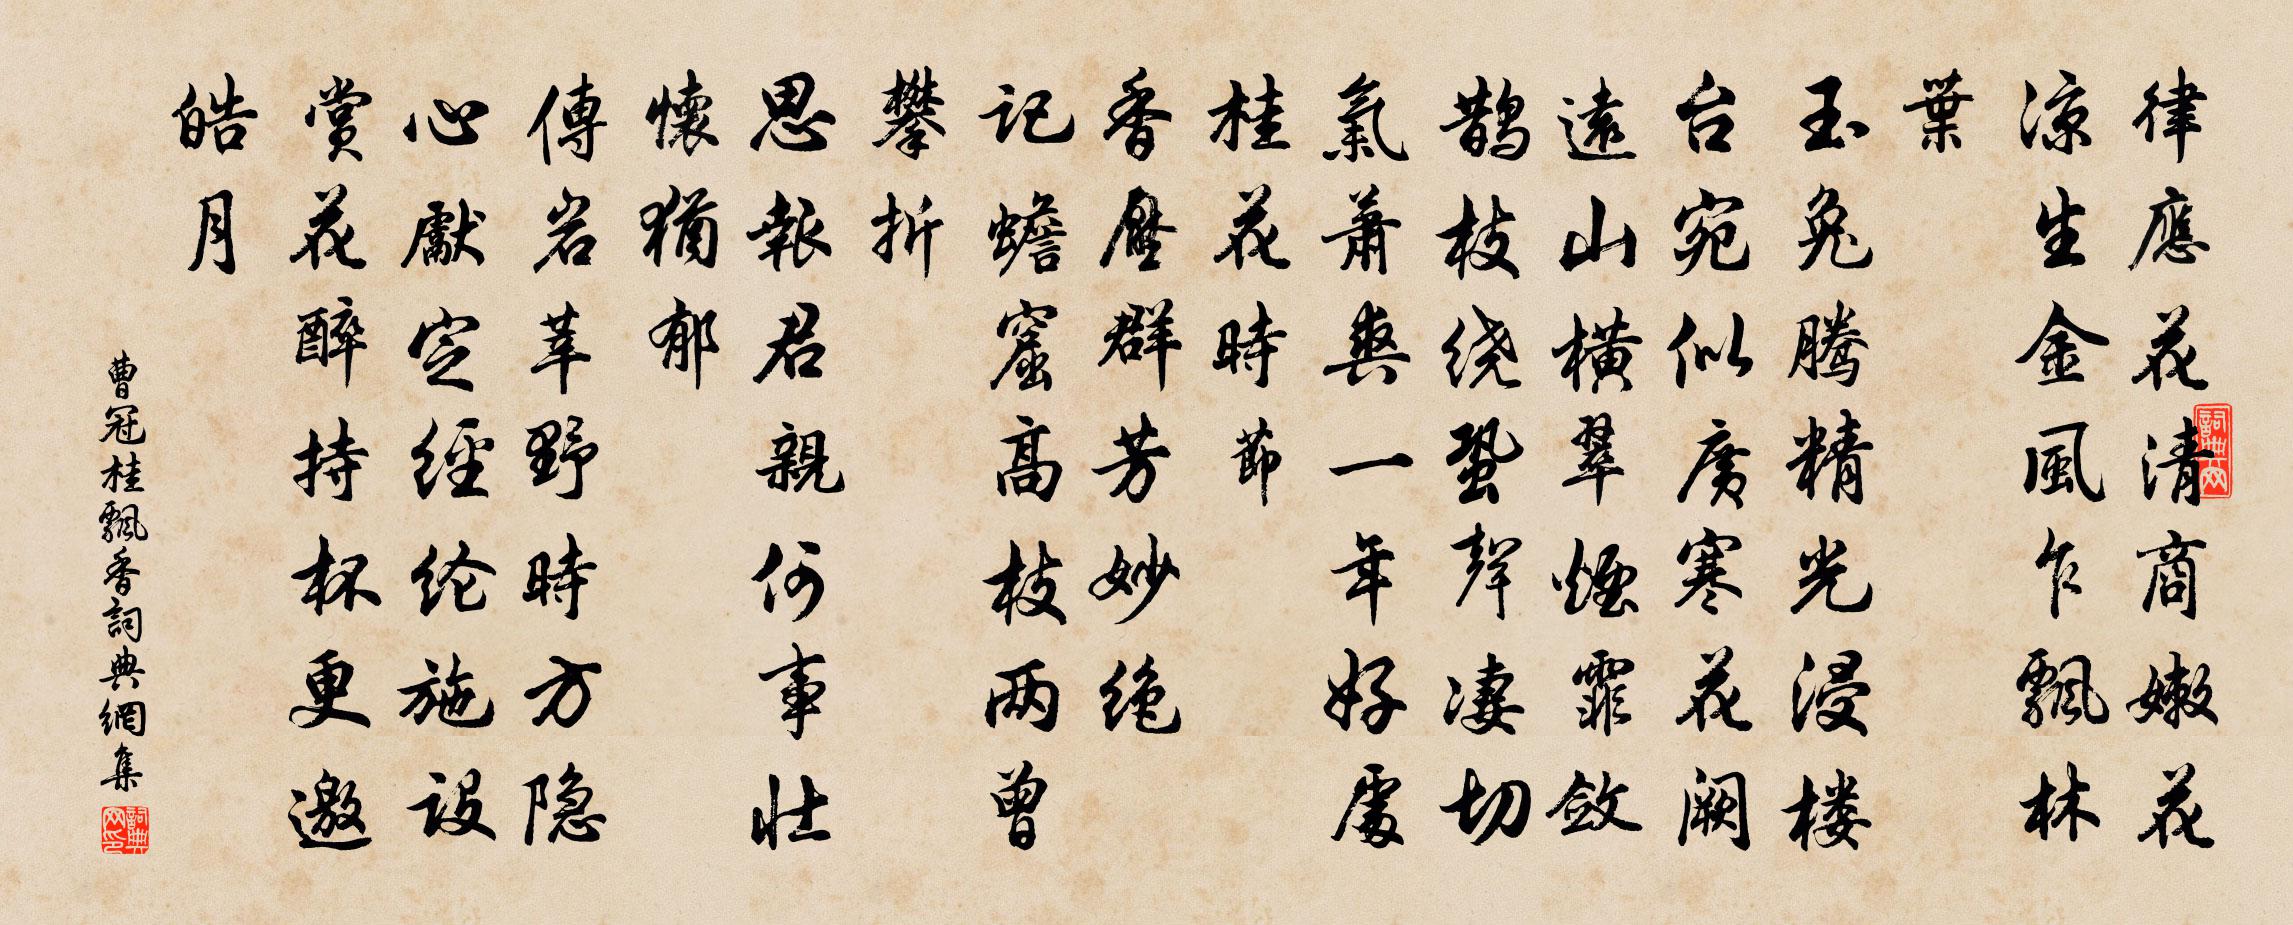 律應花清商嫩花
涼生金風乍飄林
葉
玉兔騰精光浸楼
台宛似廣寒花阙
遠山横翠煙霏斂
鵲枝绕蛩聲凄切
氣萧爽一年好處
桂花時節
香壓群芳妙绝
記蟾窟高枝两曾
攀折
思報君親何事壯
懷猶郁
傅岩莘野時方隐
心獻定經纶施設
賞花醉持杯更邀
皓月
曹冠桂飄香詞典網集
詞典网
詞典网印